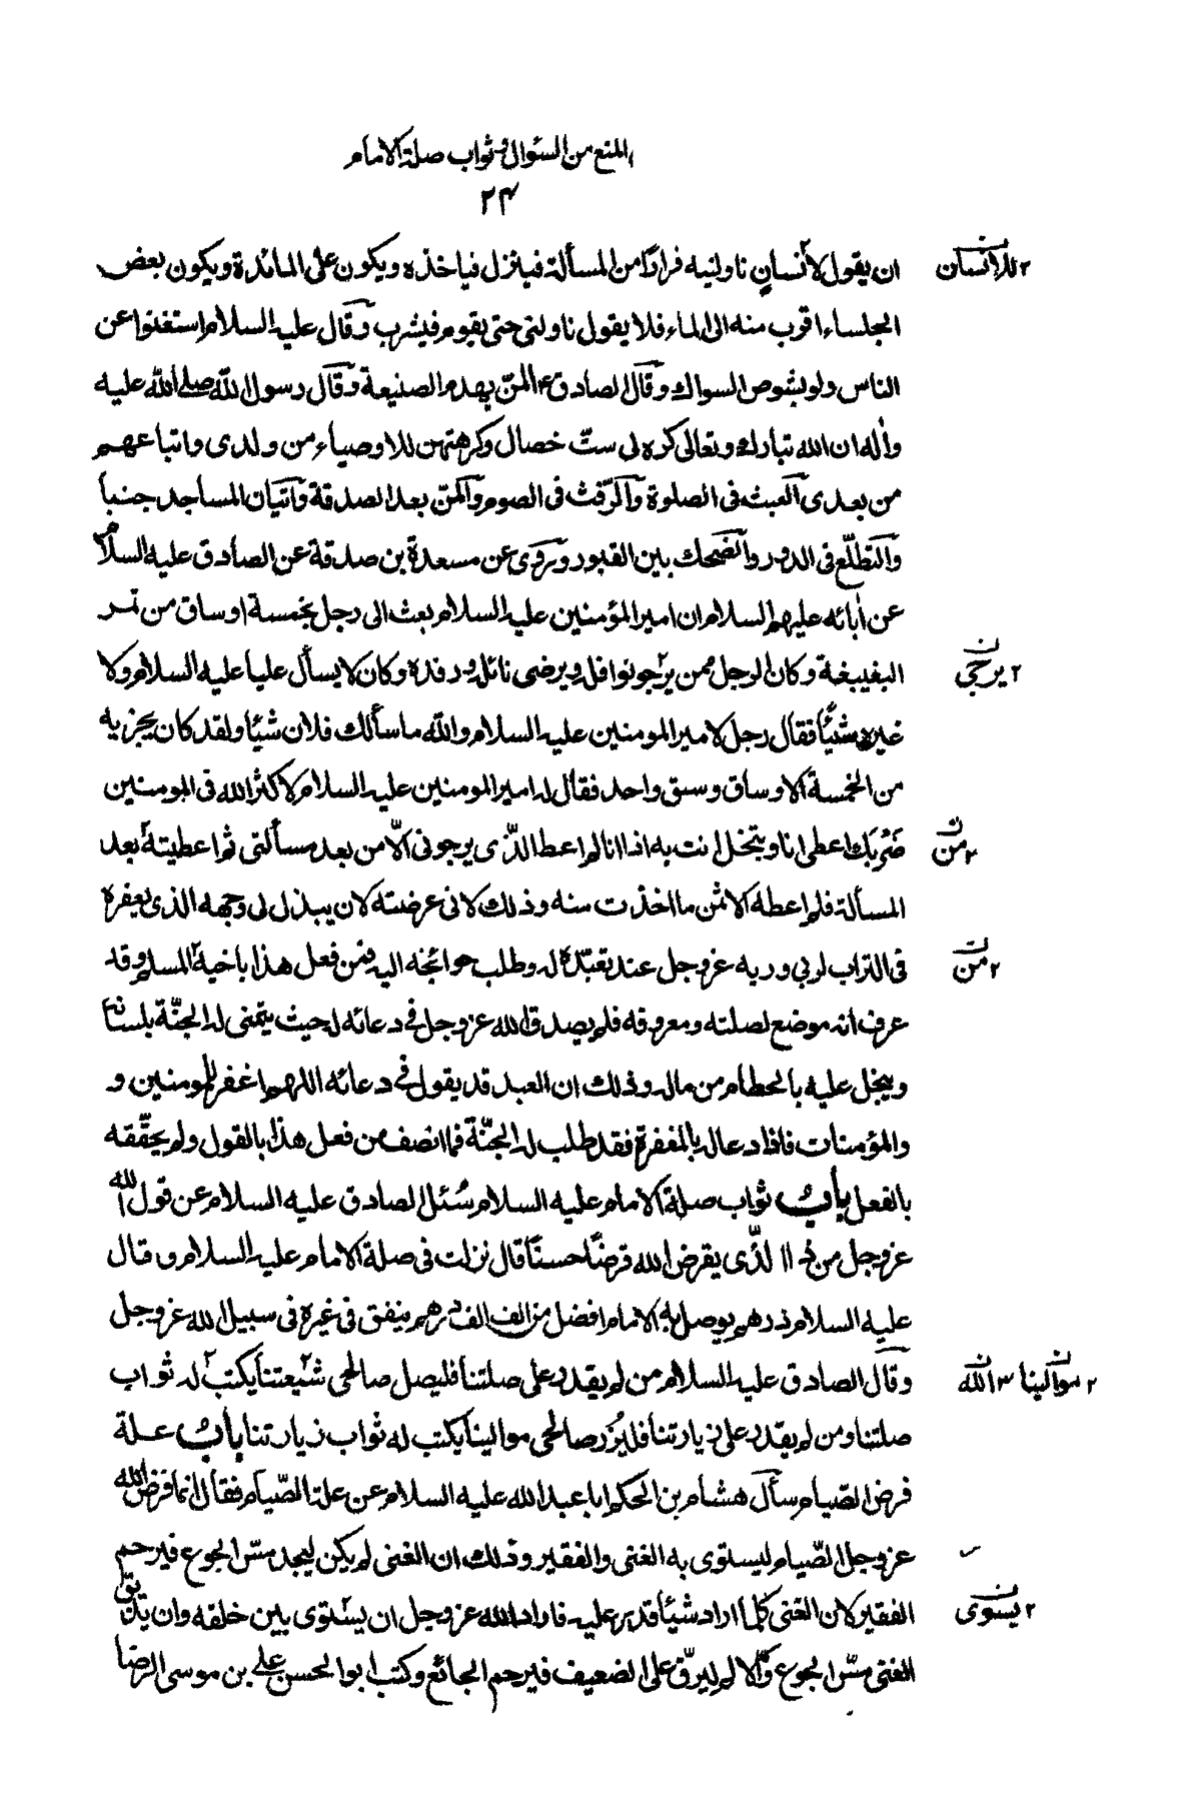 المنع من السؤال وثواب صلة الامام
۲۴
ان يقول لانسان ناولنيه فرارًا من المسألة فينزل فياخذه ويكون على المائدة ويكون بعض
۲ للانسان ن
الجلساء اقرب منه الى الماء فلا يقول ناولنى حتى يقوم فيشرب وقال عليه السلام استغنوا عن
الناس ولو بشوص السواك وقال الصادق ع المنّ يهدم الصنيعة وقال رسول الله صلى الله عليه
واٰله ان الله تبارك وتعالى كره لى ستّ خصال وكرهتهن للاوصياء من ولدى واتباعهم
من بعدى العبث فى الصلوة والرّفث فى الصوم والمنّ بعد الصدقة واتيان المساجد جنبا
والتطلّع فى الدور والضحك بين القبور وروى عن مسعدة بن صدقة عن الصادق عليه السلام
عن اٰبائه عليهم السلام ان امير المؤمنين عليه السلام بعث الى رجل بخمسة اوساق من تمر
البغيبغة وكان الرجل ممن يرجو نوافله ويرضى نائله ورفده وكان لا يسأل عليا عليه السلام ولا
۲ يرجى ن
غيره شيئًا فقال رجل لامير المومنين عليه السلام والله ما سألك فلان شيئا ولقد كان يجزيه
من الخمسة الاوساق وسق واحد فقال له امير المومنين عليه السلام لا كثر الله فى المومنين
ضَرْبَك اعطى انا وتبخل انت به اذا انا لم اعط الذّى يرجونى الّا من بعد مسألتى ثم اعطيته بعد
۲ من ن
المسألة فلم اعطه الا ثمن ما اخذت منه وذلك لانى عرضته لان يبذل لى وجهه الذى يعفره
فى التراب لربى وربه عز وجل عند تعبّده له وطلب حوائجه اليه فمن فعل هذا باخيه المسلم وقد
۲ من ن
عرف انه موضع لصلته ومعروفه فلم يصدق الله عز وجل فى دعائه له حيث يتمنى له الجنّة بلسانه
ويبخل عليه بالحطام من ماله وذلك ان العبد قد يقول فى دعائه اللهم اغفر للمومنين و
والمؤمنات فاذا دعا له بالمغفرة فقد طلب له الجنّة فما انصف من فعل هذا بالقول ولم يحقّقه
بالفعل باب ثواب صلة الامام عليه السلام سُئل الصادق عليه السلام عن قول الله
عز وجل من ذا الذّى يقرض الله قرضًا حسنًا قال نزلت فى صلة الامام عليه السلام وقال
عليه السلام درهم يوصل به الامام افضل من الف الف درهم ينفق فى غيره فى سبيل الله عز وجل
وقال الصادق عليه السلام من لم يقدر على صلتنا فليصل صالحى شيعتنا يكتب له ثواب
۲ موالينا ن ۳ الله ن
صلتنا ومن لم يقدر على زيارتنا فليُزر صالحى موالينا يكتب له ثواب زيارتنا باب علة
فرض الصّيام سأل هشام بن الحكم ابا عبد الله عليه السلام عن علة الصّيام فقال انما فرض الله
عز وجل الصّيام ليستوى به الغنى والفقير وذلك ان الغنى لم يكن ليجد مسّ الجوع فيرحم
الفقير لان الغنى كلما اراد شيئًا قدر عليه فاراد الله عز وجل ان يستوى بين خلقه وان يذيق
۲ يسوى ن
الغنى مسّ الجوع والّا لم ليرقّ على الضعيف فيرحم الجائع وكتب ابو الحسن على بن موسى الرضا